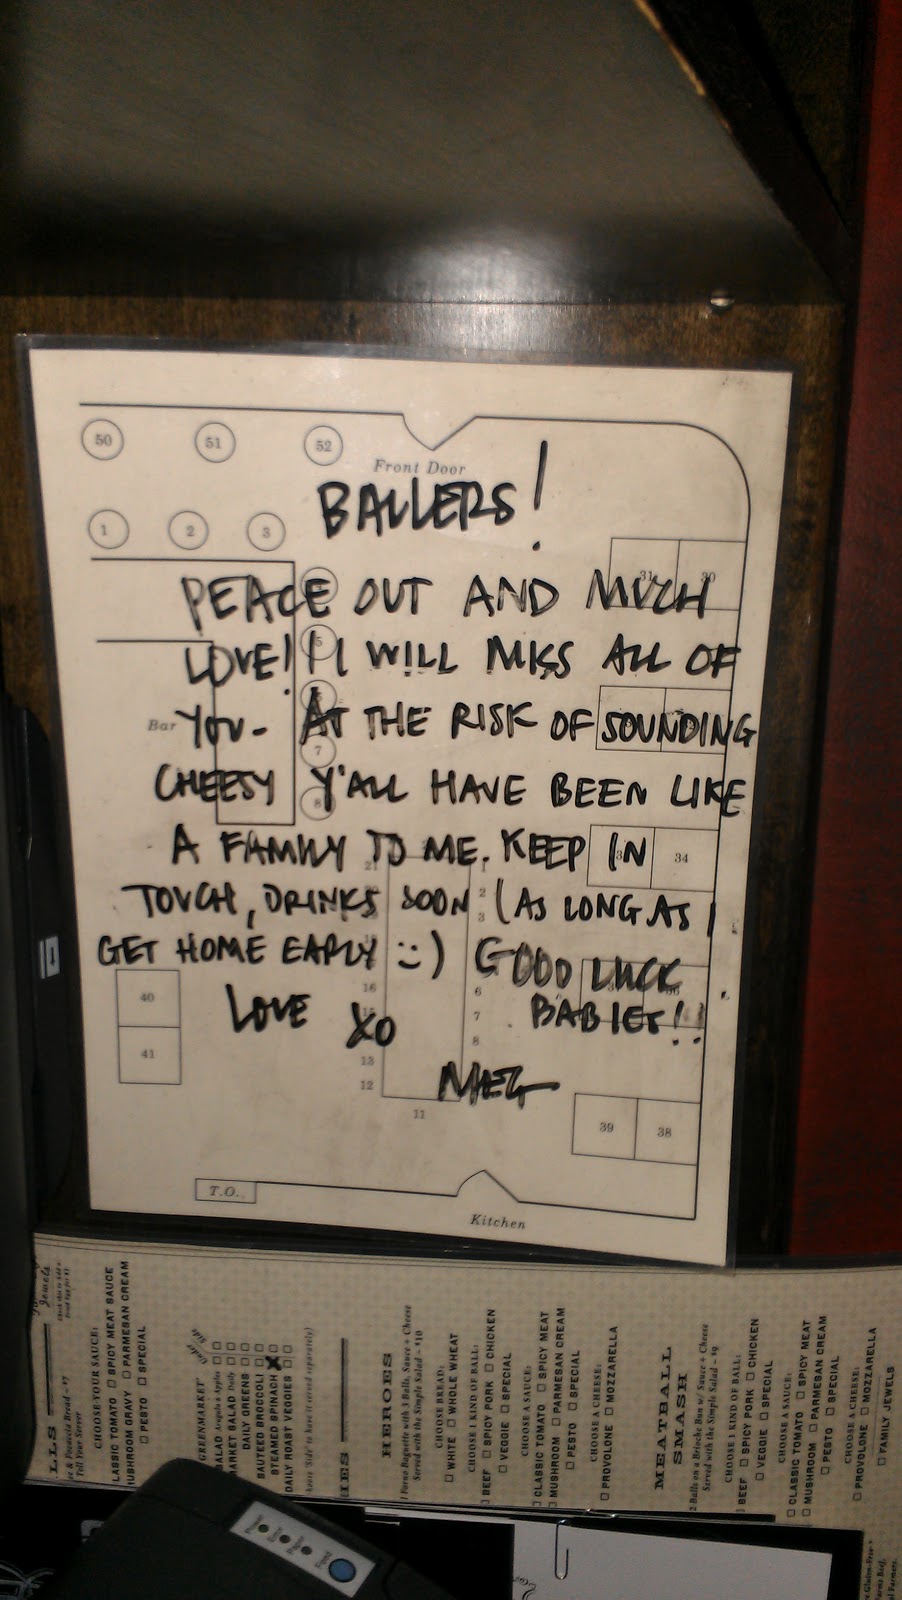 50 51 52
Front Door
BALLERS!
1 2 3
31 30
PEACE OUT AND MUCH
LOVE! I WILL MISS ALL OF
YOU - AT THE RISK OF SOUNDING
Bar
7
CHEESY Y'ALL HAVE BEEN LIKE
8
A FAMILY TO ME. KEEP IN
34
21 1
2
3
TOUCH, DRINKS SOON (AS LONG AS I
GET HOME EARLY :) GOOD LUCK
BABIES!!
LOVE XO
MEG
40
41
16
13
12
11
6
7
8
39 38
T.O.
Kitchen
Jewels
LLS
Tell Your Server
CHOOSE YOUR SAUCE:
CLASSIC TOMATO SPICY MEAT SAUCE
MUSHROOM GRAVY PARMESAN CREAM
PESTO SPECIAL
GREENMARKET
DAILY GREENS
SAUTEED BROCCOLI
STEAMED SPINACH
DAILY ROAST VEGGIES
HEROES
Served with the Simple Salad - $10
CHOOSE BREAD:
WHITE WHOLE WHEAT
CHOOSE 1 KIND OF BALL:
BEEF SPICY PORK CHICKEN
VEGGIE SPECIAL
CHOOSE A SAUCE:
CLASSIC TOMATO SPICY MEAT
MUSHROOM PARMESAN CREAM
PESTO SPECIAL
CHOOSE A CHEESE:
PROVOLONE MOZZARELLA
MEATBALL
SMASH
2 Balls on a Brioche Bun w/ Sauce + Cheese
Served with the Simple Salad - $9
CHOOSE 1 KIND OF BALL:
BEEF SPICY PORK CHICKEN
VEGGIE SPECIAL
CHOOSE A SAUCE:
CLASSIC TOMATO SPICY MEAT
MUSHROOM PARMESAN CREAM
PESTO SPECIAL
CHOOSE A CHEESE:
PROVOLONE MOZZARELLA
FAMILY JEWELS